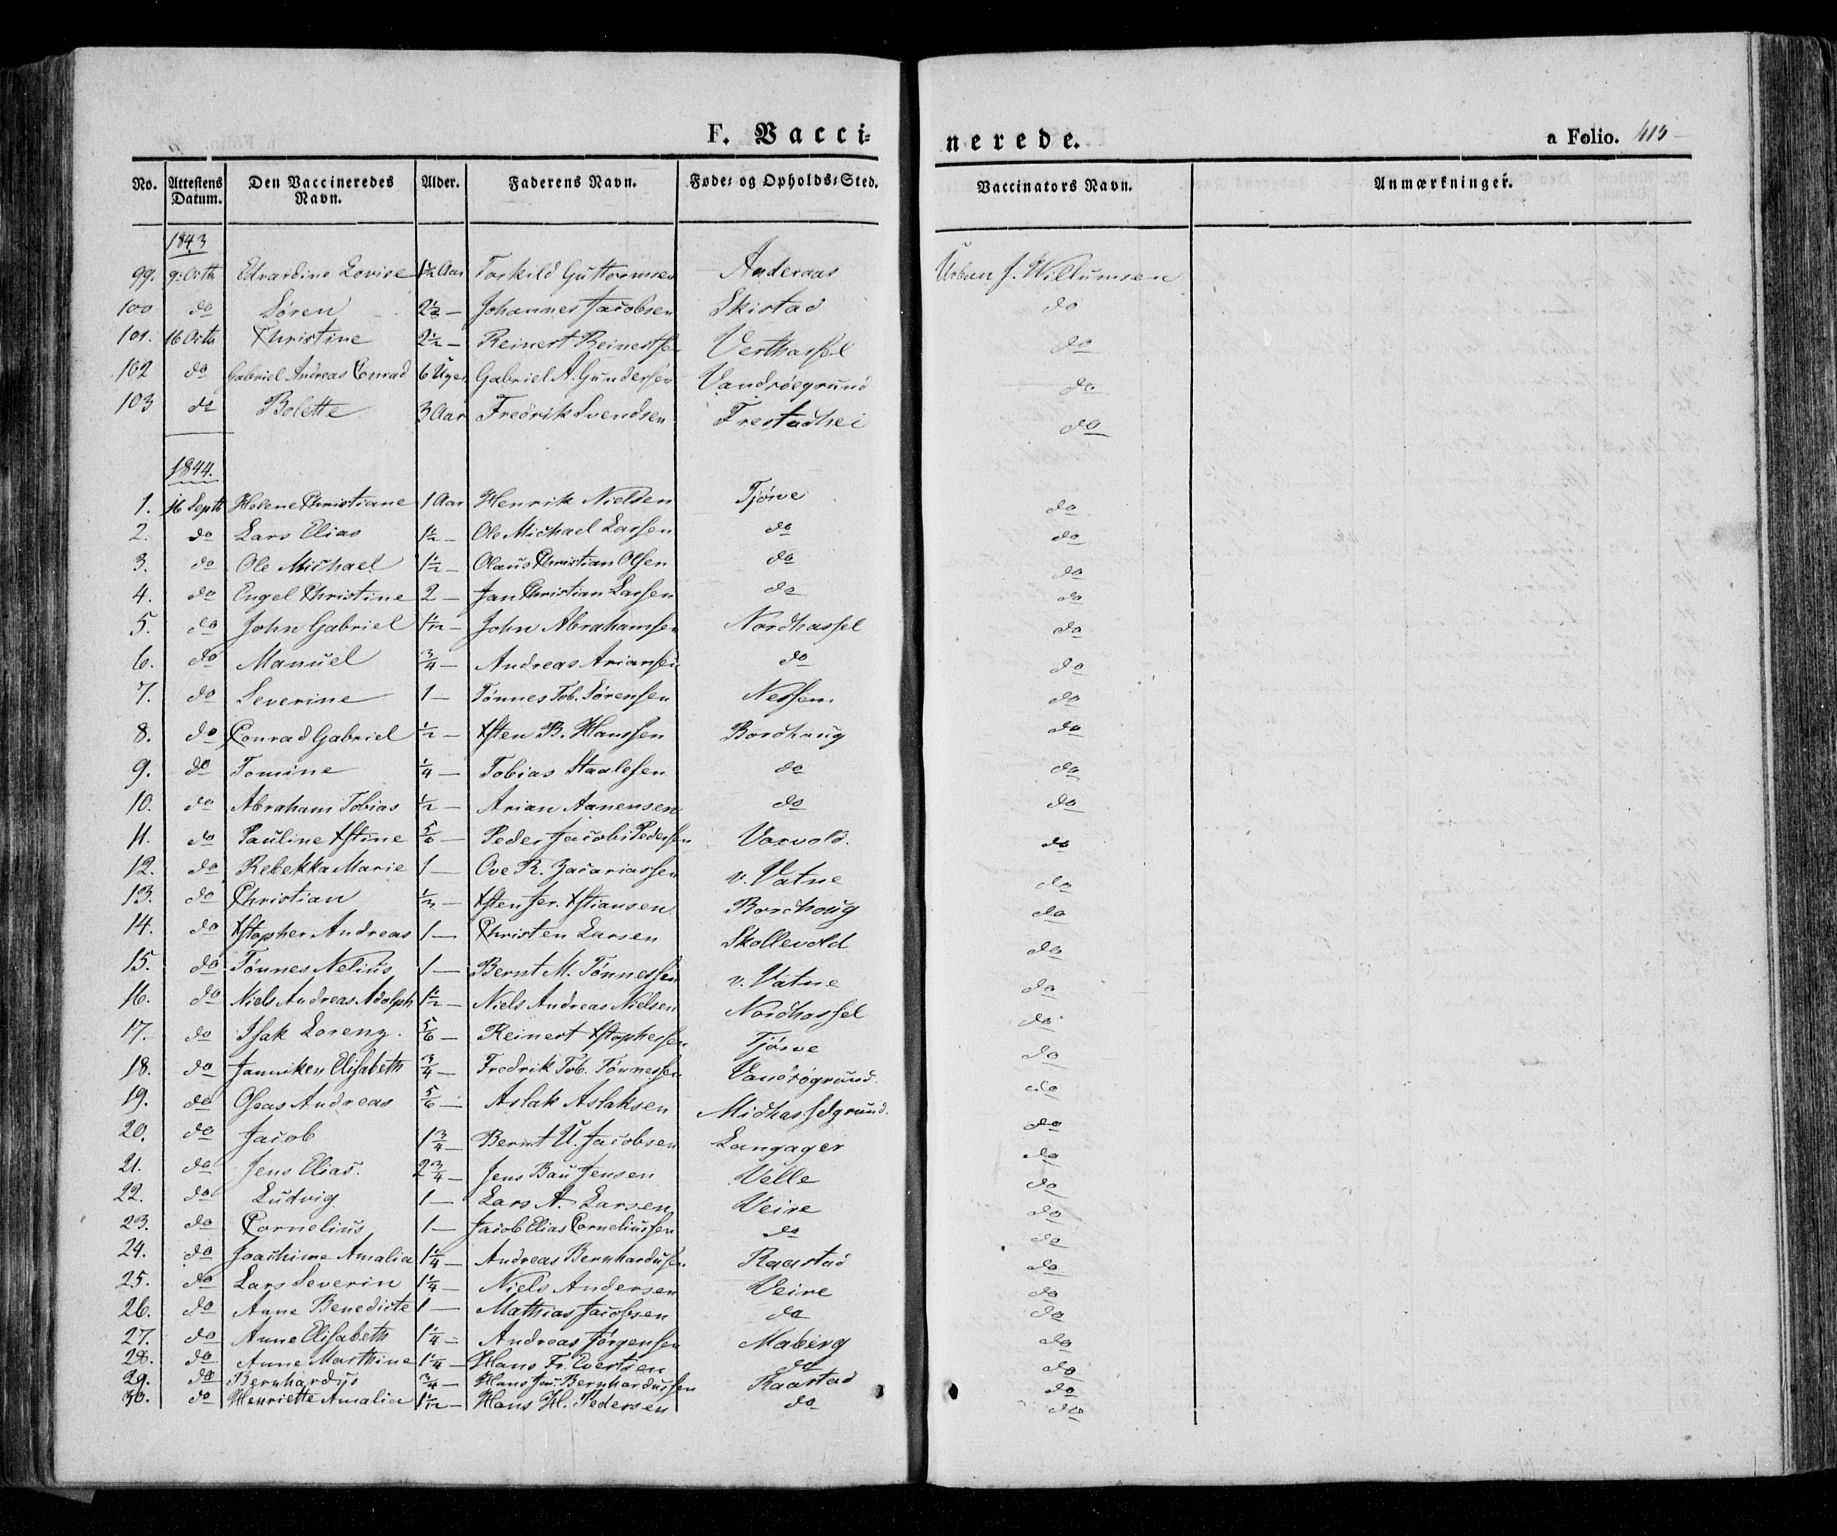 F. Vacci= nerede. a Folio. 415
No. Attestens Datum. Den Vaccineredes Navn. Alder. Faderens Navn. Føde= og Opholds=Sted. Vaccinators Navn. Anmærkninger.
1843
99. 9. Octb Edvardine Lovise 1½ Aar Torkild Guttormsen Anderaas Urban J. Willumsen
100 do Søren 2½ — Johannes Jacobsen Skistad do
101. 16 Octb Christine 2½ — Reinert Reinertse Verthassel do
102 do Gabriel Andreas Conrad 6 Uger Gabriel A. Gundersen Vandrøegrund do
103 do Bolette 3 Aar Fredrik Svendsen Frestadhei do
1844.
1. 16 Septb Helene Christiane 1 Aar Henrik Nielsen Tjørve do
2. do Lars Elias 1½ — Ole Michael Larssen do do
3. do Ole Michael 1½ — Olaus Christian Olsen do do
4. do Engel Christine 2 — Jan Christian Larsen do do
5. do John Gabriel 1 1/12 — John Abrahamsen Nordhassel do
6. do Manuel ¾ — Andreas Ariansen do do
7. do Severine 1 — Tønnes Tob. Sørensen Nessem. do
8. do Conrad Gabriel ½ — Xsten B. Hanssen Bordhaug do
9. do Tomine ¼ — Tobias Staalesen do do
10. do Abraham Tobias ½ — Arian Aanensen do do
11. do Pauline Xstine 5/6 — Peder Jacobs Pedersen Vorvold. do
12. do Rebekka Marie 1 — Ove R. Zacariassen v. Vatne do
13. do Christian ½ — Xsten Jer. Xstiansen Bordhoug do
14. do Xstopher Andreas 1 — Christen Larsen Skollevold do
15. do Tønnes Nelius 1 — Bernt M. Tønnessen v. Vatne do
16. do Niels Andreas Adolph 1½ — Niels Andreas Nielsen Nordhassel do
17. do Isak Lorenz. 5/6 — Reinert Xstophersen Tjørve do
18. do Janniken Elisabeth ¾ — Fredrik Tob. Tønnessen Vandrøgrund. do
19. do Oseas Andreas 5/6 — Aslak Aslaksen Midhasselgrund. do
20. do Jacob 1¾ — Bernt U. Jacobsen Langager do
21. do Jens Elias. 2¾ — Jens Bau Jensen Velle do
22. do Ludvig 1 — Lars A. Larsen Veire do
23. do Cornelius 1 — Jacob Elias Corneliussen do do
24. do Joachime Amalia 1¼ — Andreas Bernhardusen. Raastad do
25. do Lars Severin 1¼ — Niels Andersen Veire do
26. do Anne Benedicte 1 — Mathias Jacobsen do do
27. do Anne Elisabeth 1¼ — Andreas Jørgensen Maberg do
28. do Anne Marthine 1¼ — Hans Fr. Evertsen do do
29. do Bernhardus ¾ — Hans Jac. Bernhardussen Raastad do
30. do Henriette Amalia 1 1/12 — Hans H. Pedersen do do